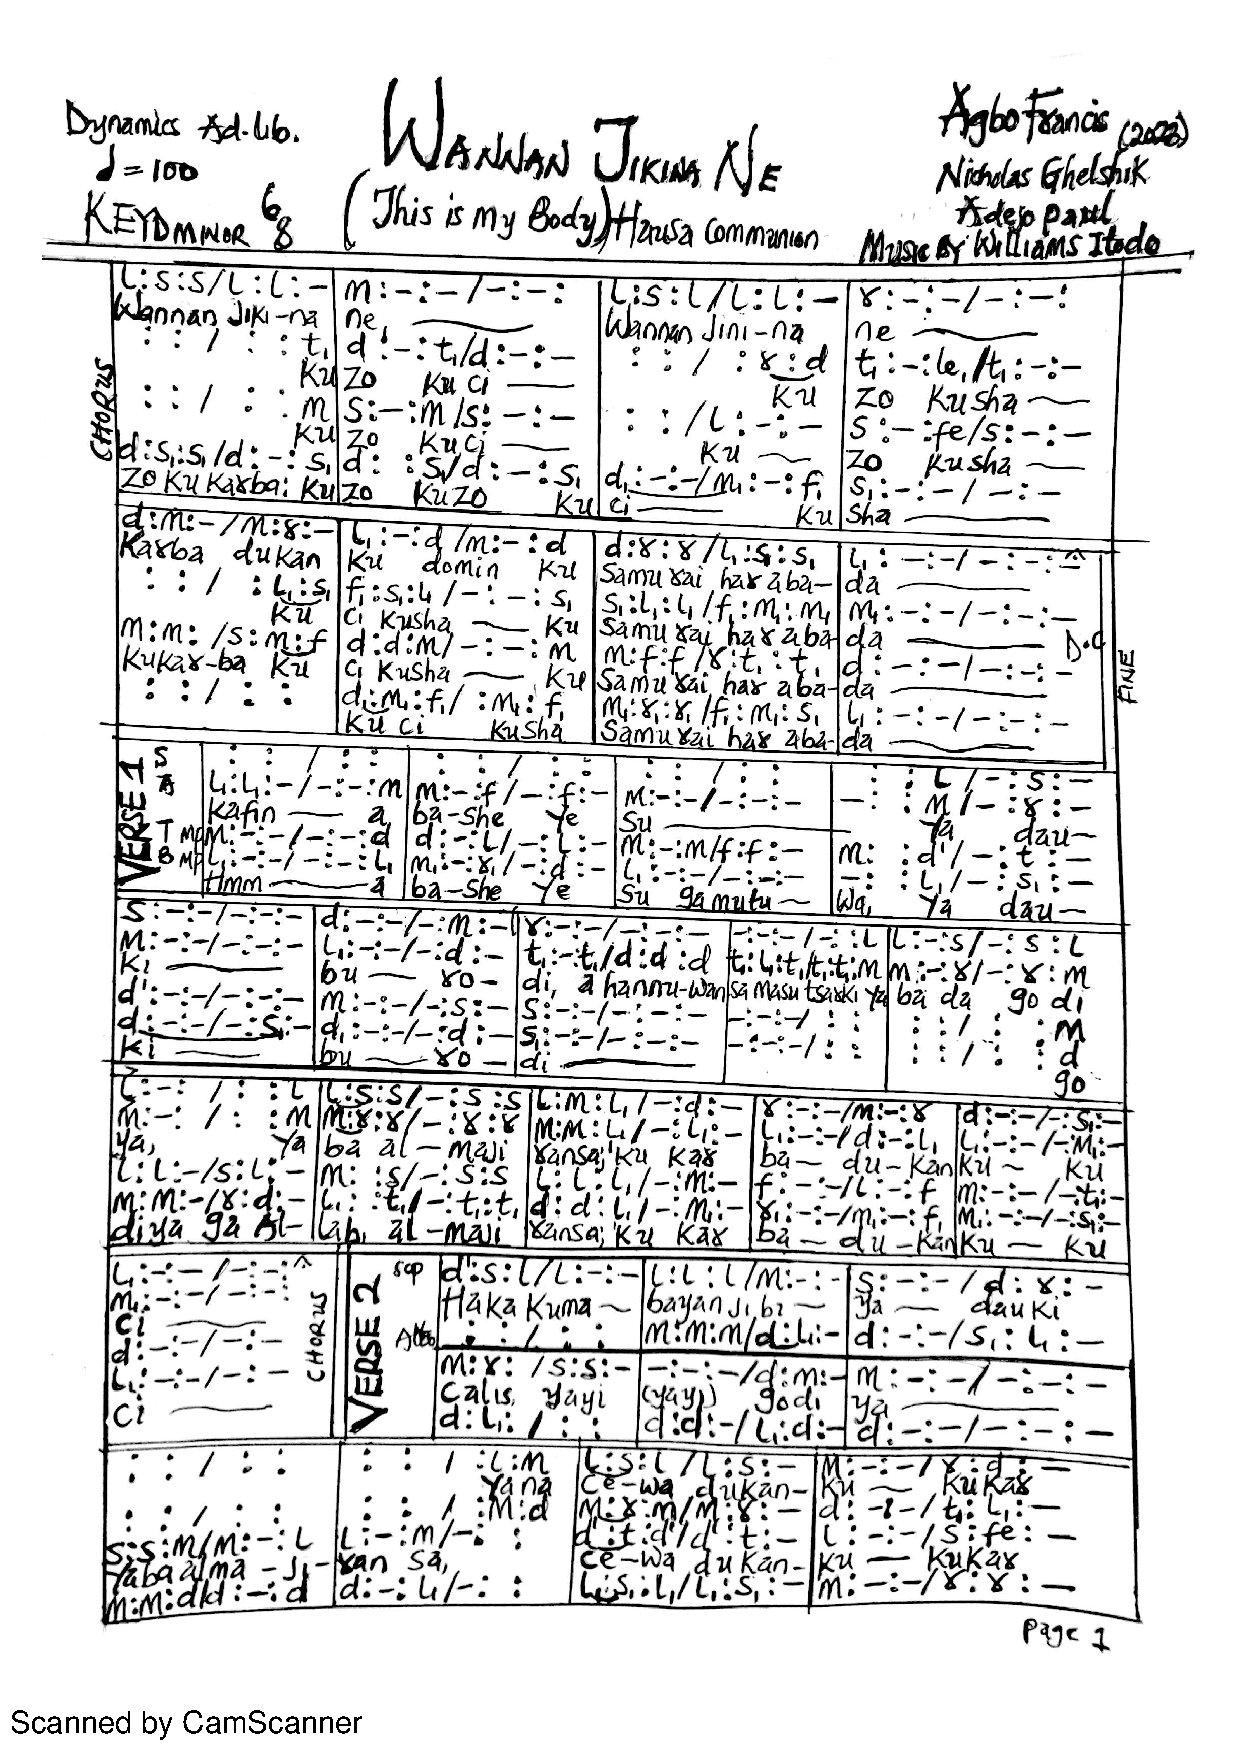 Dynamics Ad-Lib.
d = 100
KEY D MINOR 6/8
WANNAN JIKINA NE
(This is my Body) Hausa Communion
Agbo Francis
Nicholas Ghelshik
Adejo Paul
Music By Williams Itodo
CHORUS
L:S:S/L:L:- | M:-:-/-:-:- | L:S:L/L:L:- | r:-:-/-:-:
Wannan Jiki-na | ne, | Wannan Jini-na | ne
: : / : : t, | d:-:t,/d:-:- | : : / :r:d | t,:-:le,/t,:-:-
Ku | zo Ku ci | Ku | zo Kusha
: : / : . M | S:-:M/S:-:- | : : /L:-:- | S:-:fe/S:-:-
Ku | zo Kuci | Ku | zo Kusha
d:S,:S,/d:-:S, | d: :S,/d:-:S, | d,:-:-/M,:-:f, | S,:-:-/-:-
zo Ku Karba: Ku | zo Kuzo Ku | ci Ku | Sha
d:M:-/M:r:- | L,:-:d/M:-:d | d:r:r/L,:S,:S, | L,:-:-/-:-:-
Karba dukan | Ku domin Ku | Samu rai har aba- | da
: : / :L,:S, | f,:S,:L,/-:-:S, | S,:L,:L,/f,:M,:M, | M,:-:-/-:-:-
Ku | ci Kusha Ku | Samu rai har aba- | da D.C
M:M: /S:M:f | d:d:M/-:-:M | M:f:f/r:t,:t, | d:-:-/-:-:-
Kukar-ba Ku | ci Kusha Ku | Samu rai har aba- | da
: : / : : | d,:M,:f,/ :M,:f, | M,:r,:r,/f,:M,:S, | L,:-:-/-:-:-
Ku ci Kusha | Samu rai har aba- | da
FINE
VERSE 1
S : : / : : | : : / : : | : : / : : | : L/-:S:-
A L,:L,:-/-:-:M | M:-:f/-:f:- | M:-:-/-:-:- | -: : M/-:r:-
Kafin a | ba-she ye | Su | Ya dau-
T M:-:-/-:-:d | d:-:L/-:L:- | M:-:M/f:f:- | M: :d'/-:t:-
B L,:-:-/-:-:L, | M,:-:r,/-:d:- | L,:-:-/-:-:- | -: :L,/-:S,:-
Hmm a | ba-she ye | Su gamutu | Wa, Ya dau-
S:-:-/-:-:- | d:-:-/-:M:- | r:-:-/-:-:- | -:-:-/-:-:L | L:-:S/-:S:L
M:-:-/-:-:- | L,:-:-/-:d:- | t,:-:t,/d:d:d | t,:L,:t,/t,:t,:M | M:-:r/-:r:M
Ki | bu ro- | di, a hannu-wan | sa masu tsarki ya | ba da go di
d':-:-/-:-:- | M:-:-/-:S:- | S:-:-/-:-:- | -:-:-/ : : | : : / : :M
d:-:-/-:S,:- | d,:-:-/-:d:- | S,:-:-/-:-:- | -:-:-/ : : | : : / : :d
Ki | bu ro- | di | go
L:-: / : :L | L:S:S/-:S:S | L:M:L,/-:d:- | r:-:-/M:-:r | d:-:-/-:S,:-
M:-: / : :M | M:r:r/-:r:r | M:M:L,/-:L,:- | L,:-:-/d:-:L, | L,:-:-/-:M,:-
Ya, Ya | ba al-maji | ransa, Ku Kar | ba- du-Kan | Ku Ku
L:L:-/S:L:- | M: :S/-:S:S | L:L:L,/-:M:- | f:-:-/L:-:f | M:-:-/-:t,:-
M:M:-/r:d:- | L,: :t,/-:t,:t, | d:d:L,/-:M,:- | r,:-:-/M,:-:f, | M,:-:-/-:S,:-
diya ga Al- | lah, al-maji | ransa, Ku Kar | ba- du-Kan | Ku Ku
L,:-:-/-:-:-
M,:-:-/-:-:-
Ci
d:-:-/-:-:-
L,:-:-/-:-:-
Ci
CHORUS
VERSE 2
Sop d':S:L/L:-:- | L:L:L/M:-:- | S:-:-/d:r:-
Haka Kuma | bayan Jibi | ya dauki
Alto : : / : : | M:M:M/d:L,:- | d:-:-/S,:L,:-
M:r: /S:S:- | -:-:-/d:M:- | M:-:-/-:-:-
Calis, yayi | (yayi) godi | ya
d:L,: / : : | d:d:-/L,:d:- | d:-:-/-:-:-
: : / : : | : : / :L:M | L:S:L/L:S:- | M:-:-/r:d:-
Yana | Ce-wa dukan- | Ku KuKar
: : / : : | : : / :M:d | M:r:M/M:r:- | d:-:-/t,:L,:-
S:S:M/M:-:L | L:-:M/-: : | d':t:d'/d':t:- | L:-:-/S:fe:-
Yaba alma-Ji- | ran sa, | Ce-wa dukan- | Ku KuKar
M:M:d/d:-:d | d:-:L,/-: : | L,:S,:L,/L,:S,:- | M:-:-/r:r:-
Page 1
Scanned by CamScanner